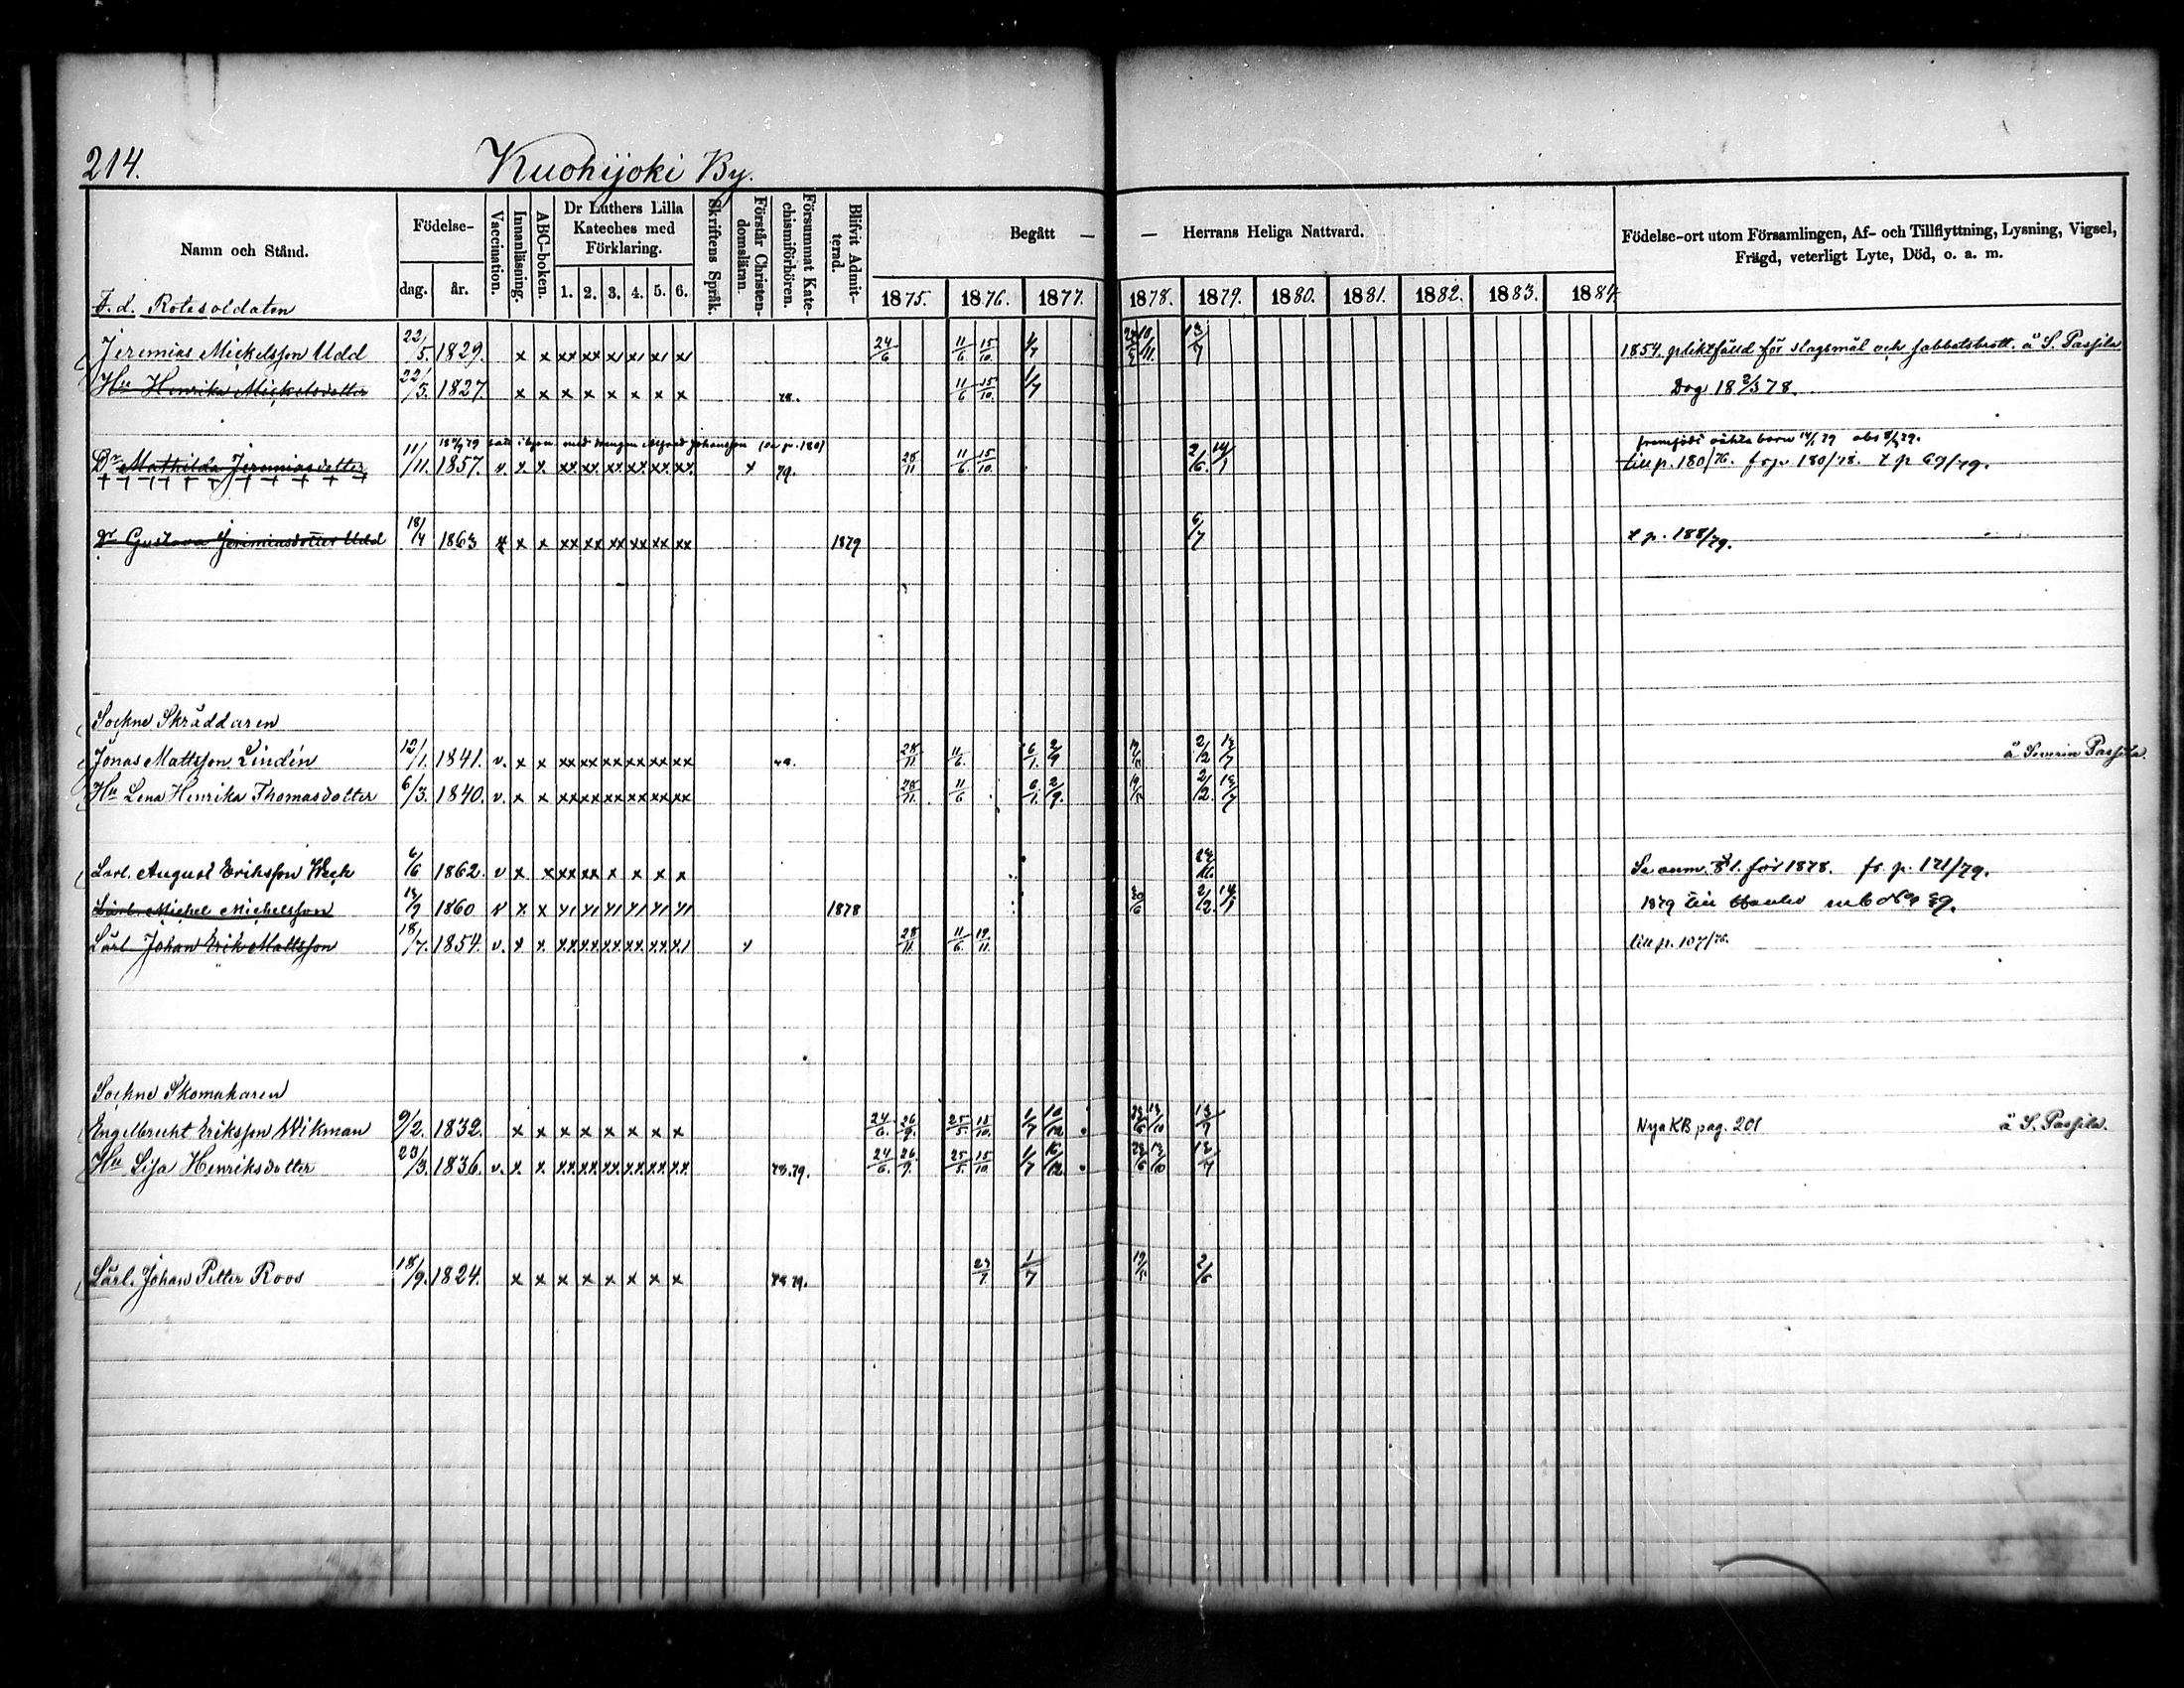 214.
Kuohijoki By.
Namn och Stånd.
Födelse-
dag. år.
Vaccination.
Innanläsning.
ABC-boken.
Dr Luthers Lilla Kateches med Förklaring.
1. 2. 3. 4. 5. 6.
Skriftens Språk.
Förstår Christen-domsläran.
Försummat Kate-chismiförhören.
Blifvit Admit-terad.
Begått — — Herrans Heliga Nattvard.
1875. 1876. 1877. 1878. 1879. 1880. 1881. 1882. 1883. 1884
Födelse-ort utom Församlingen, Af- och Tillflyttning, Lysning, Vigsel,
Frägd, veterligt Lyte, Död, o. a. m.
F. d. Rotesoldaten
Jeremias Mickelsson Udd 22/5. 1829. x x xx xx x x x x 24/6 11/6 15/10. 1/7 13/7 1854. pliktfälld för slagsmål och sabbatsbrott. à S. Passila
Hu Henrika Mickelsdotter 22/5. 1827. x x x x x x x x 11/6 15/10. 1/7 Dog 18 2/3 78.
med drengen Alfred Johansson
Dr Mathilda Jeremiasdotter 11/11. 1857. v. x x xx xx xx xx xx xx 79. 28/11 11/6. 15/10. 2/6. till p. 180/76. fr p. 180/78. t p 69/79.
Dr Gustava Jeremiasdotter Udd 18/4 1863 x x xx xx xx xx xx xx 1879 6/7 t p. 188/79.
Sockne Skräddaren
Jonas Mattsson Lindén 12/1. 1841. v. x x xx xx xx xx xx xx 28/11. 11/6. 6/1. 2/9 2/2 13/7 à Severin Passila.
Hu Lena Henrika Thomasdotter 6/3. 1840. v. x x xx xx xx xx xx xx 28/11. 11/6 6/1. 2/9. 2/2. 13/7
Lärl. August Eriksson Week 6/6 1862. v x x xx xx x x x x Se anm. för 1878. fr. p. 121/79.
Lärl. Michel Michelsson 1860 x x 1878 30/6 2/2. 1879
Lärl Johan Erik Mattsson 18/7. 1854. v. x x. xx xx xx xx xx x 28/11. 11/6. 19/11. till p. 107/76.
Sockne Skomakaren
Engelbrecht Eriksson Wikman 9/2. 1832. x x x x x x x x 24/6. 26/9. 25/5. 15/10. 1/7 10/12 13/7 Nya KB pag. 201 à S. Passila.
Hu Lisa Henriksdotter 23/3. 1836. v. x x xx xx xx xx xx xx 78.79. 24/6. 26/9. 25/5. 15/10. 1/7 13/7
Lärl. Johan Petter Roos 18/9. 1824. x x x x x x x x 78 79. 23/7. 1/7 2/6